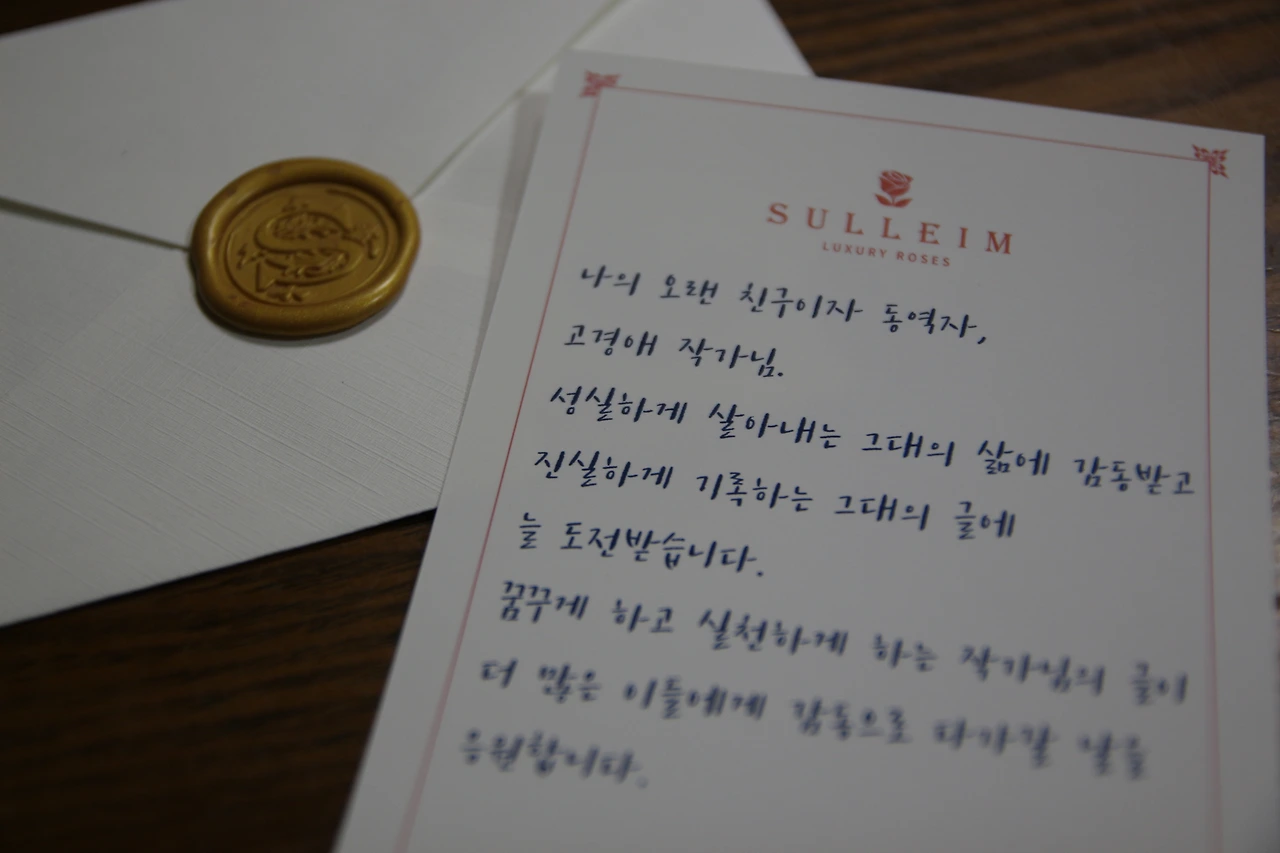 SULLEIM
LUXURY ROSES
나의 오랜 친구이자 동역자,
고경애 작가님.
성실하게 살아내는 그대의 삶에 감동받고
진실하게 기록하는 그대의 글에
늘 도전받습니다.
꿈꾸게 하고 실천하게 하는 작가님의 글이
더 많은 이들에게 감동으로 다가갈 날을
응원합니다.